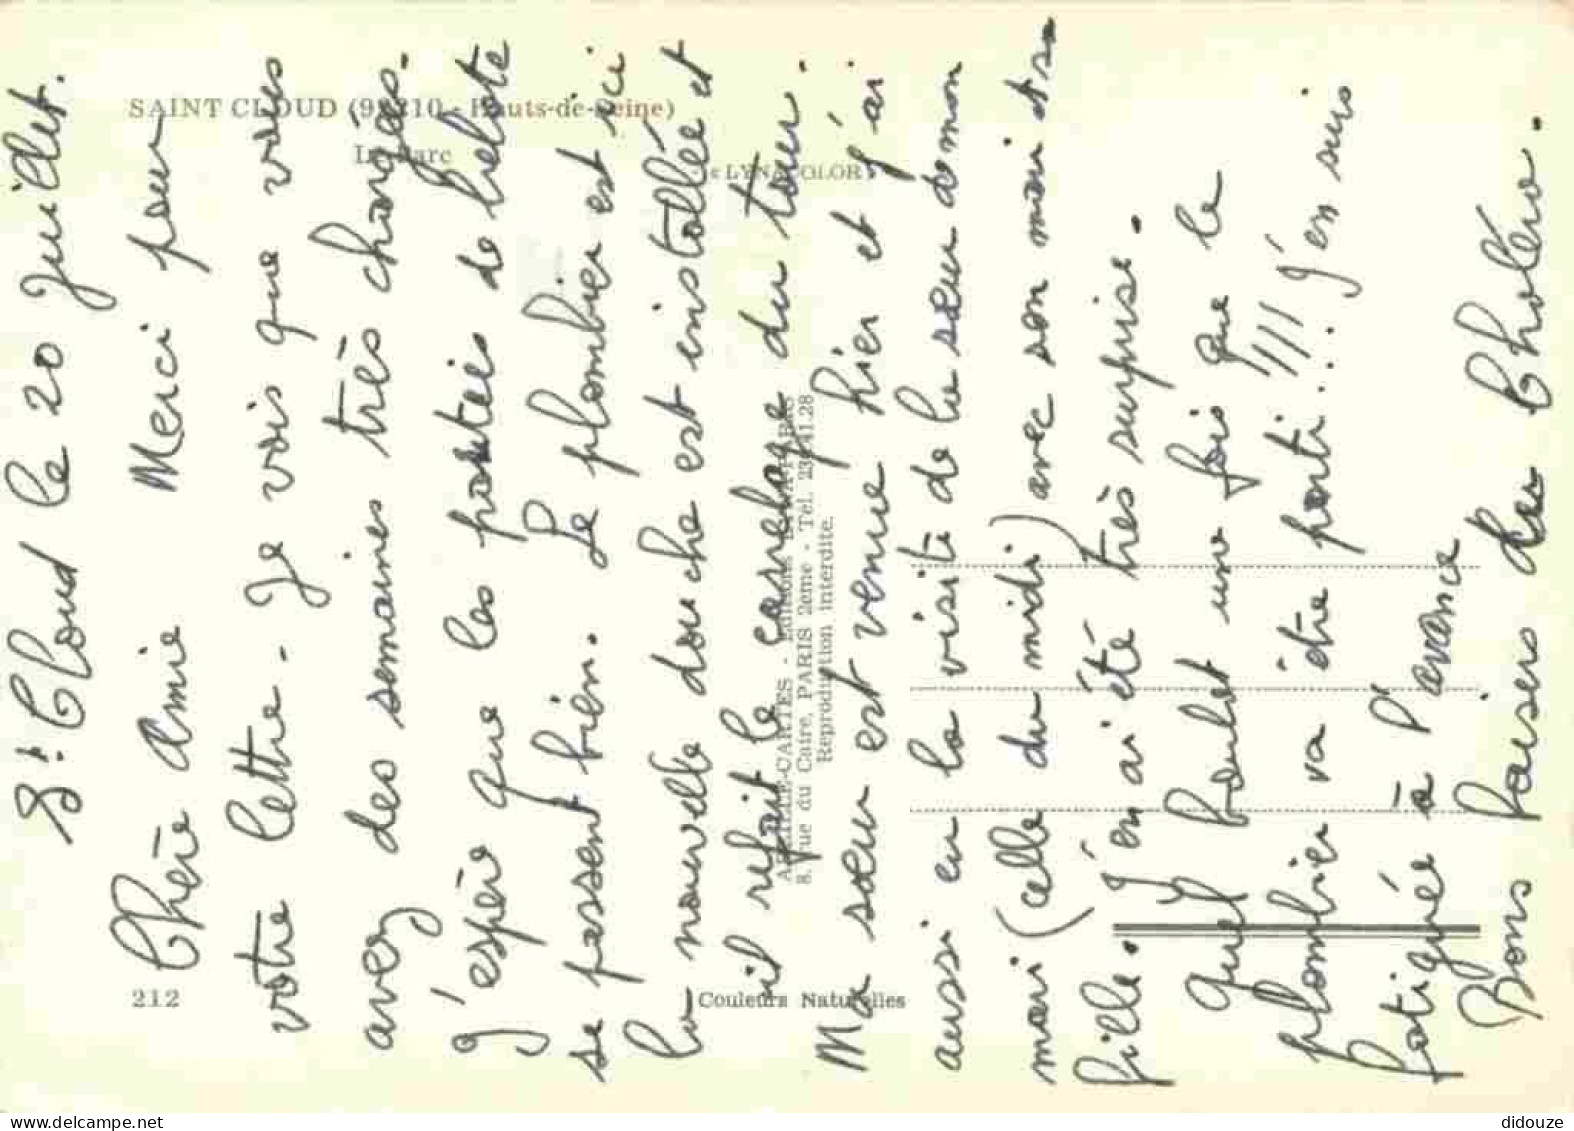 SAINT CLOUD (92210 - Hauts-de-Seine)
Le Parc
LYNACOLOR
212
Couleurs Naturelles
ABEILLE-CARTES - Editions LYNA-PARIS
8, rue du Caire, PARIS 2ème - Tél. 236.41.28
Reproduction interdite.
St Cloud le 20 Juillet.
Chère Amie Merci pour
votre lettre. Je vois que vous
avez des semaines très chargées.
J'espère que les parties de belote
se passent bien. Le plombier est ici
la nouvelle douche est installée et
il refait le carrelage du tour.
Ma sœur est venue hier et j'ai
aussi eu la visite de la sœur de mon
mari (celle du midi) avec son mari et sa
fille. J'en ai été très surprise.
Quel boulot une fois que le
plombier va être parti... !!! J'en suis
fatiguée à l'avance
Bons baisers des
didouze